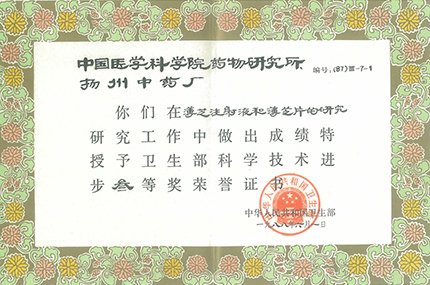 中国医学科学院药物研究所
编号:(87)Ⅲ-7-1
扬州中药厂
你们在薄芝注射液和薄芝片的研究
研究工作中做出成绩特
授予卫生部科学技术进
步叁等奖荣誉证书
中华人民共和国卫生部
一九八八年六月一日